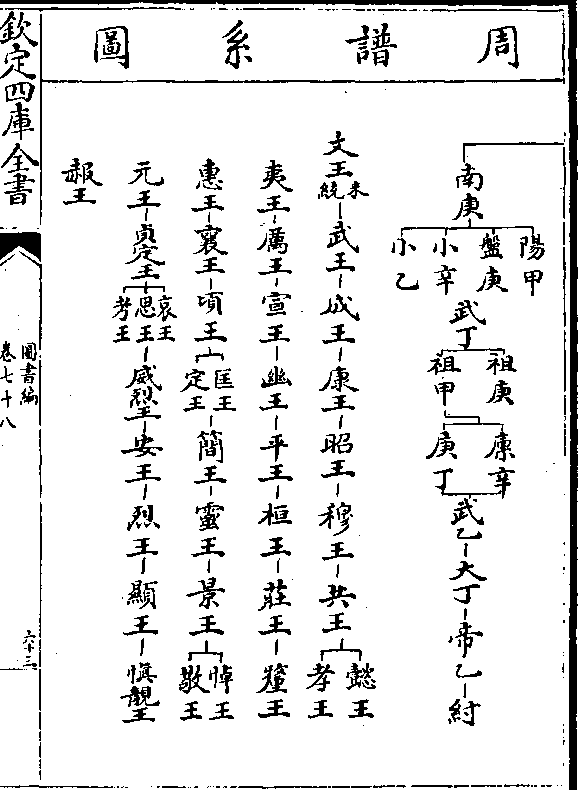 周譜系圖
南庚
陽甲
盤庚
小辛
小乙
武丁
祖庚
祖甲
廩辛
庚丁
武乙 大丁 帝乙 紂
文王未統 武王 成王 康王 昭王 穆王 共王 懿王 孝王
夷王 厲王 宣王 幽王 平王 桓王 莊王 釐王
惠王 襄王 頃王 匡王 定王 簡王 靈王 景王 悼王 敬王
元王 貞定王 哀王 思王 考王 威烈王 安王 烈王 顯王 慎靚王
赧王
欽定四庫全書
圖書編
卷七十八
六十三